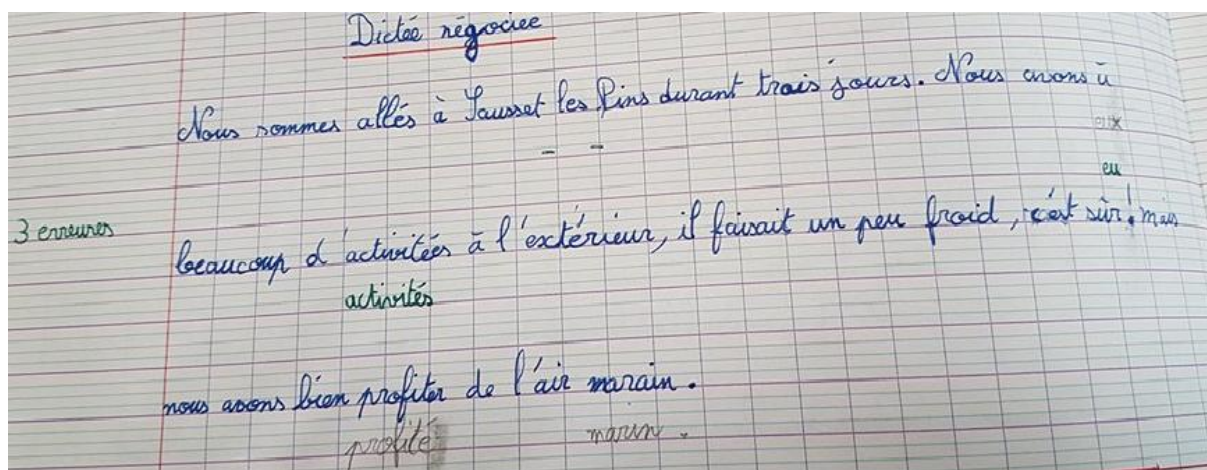 Dictée négociee
Nous sommes allés à Sausset les Pins durant trois jours. Nous avons u
eu
3 erreures
beaucoup d'activitées à l'extérieur, il faisait un peu froid, c'est sûr! mais
activités
nous avons bien profiter de l'air marain.
profité marin.